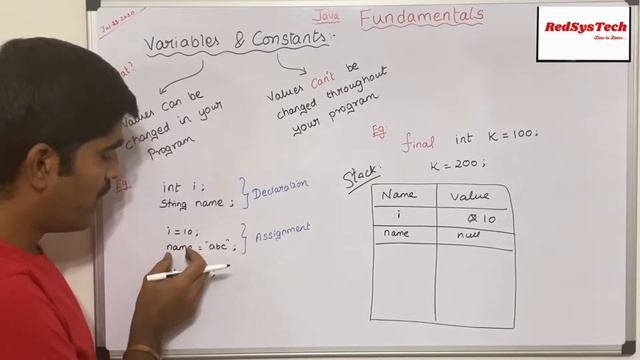 Jul 23 2020
Java Fundamentals
RedSysTech
Variables & Constants:-
Values can be
changed in your
Program
Values Can't be
changed throughout
your program
Eg:
final int K=100;
K=200;
Eg:
int i;
String name;
Declaration
i=10;
name="abc";
Assignment
Stack:
Name Value
i 10
name null